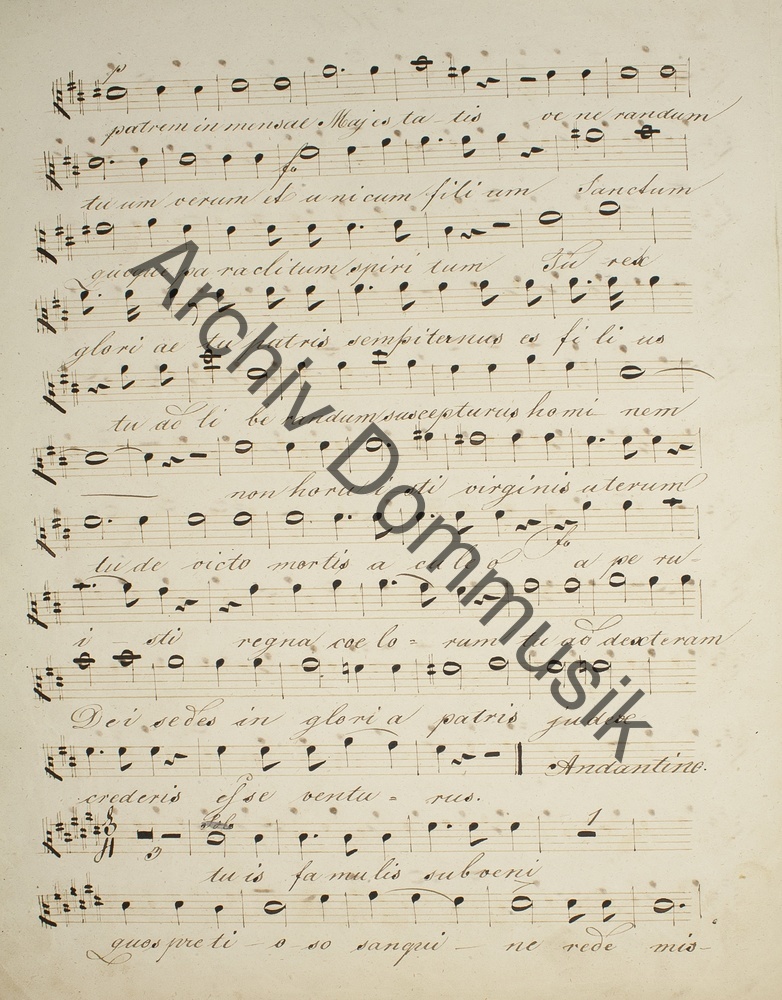 p
patrem inmensae Majes ta-tis ve ne randum
fo
tu um verum et unicum fili um Sanctum
quoque pa raclitum spiri tum Tu rex
glori ae tu patris sempiternus es fi li us
tu ad li be randum suscepturus homi nem
non horu i sti virginis uterum
fo
tu de victo mortis a cu le o a pe ru-
i - sti regna coe lo = rum tu ad dexteram
Dei sedes in glori a patris judex
Andantino.
crederis esse ventu = rus.
3/4 3 Solo 1
tu is famulis subveni
quos preti - o so sangui - ne rede mis-
Archiv Dommusik